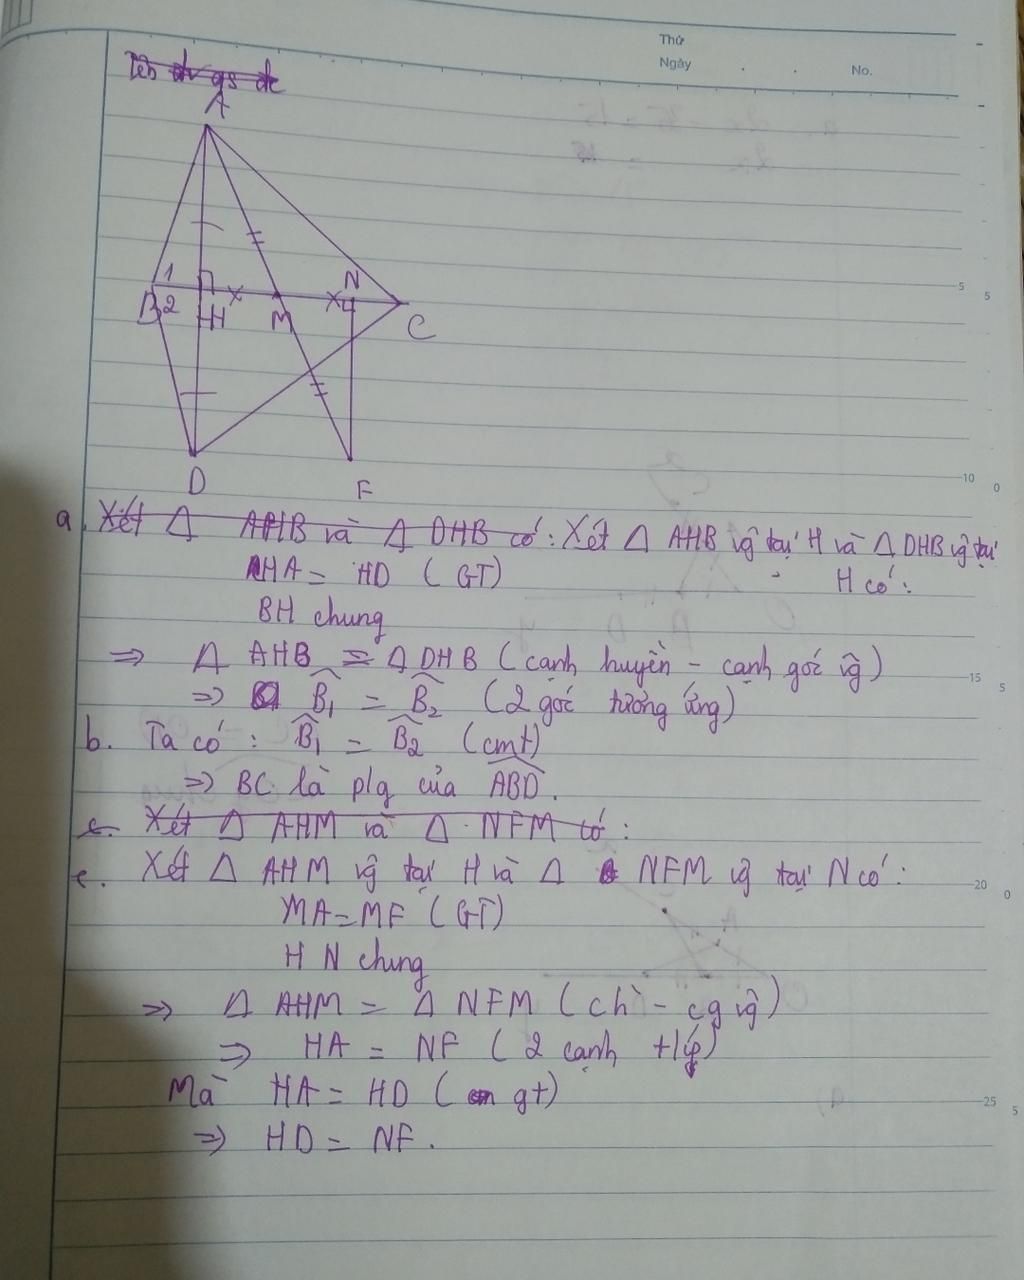 Thứ
Ngày . . No.
A
1 N
B 2 H M C
D F
5 5
10 0
15 5
20 0
25 5
a. Xét Δ AHB và Δ DHB có: Xét Δ AHB vg tại H và Δ DHB vg tại
H có:
HA = HD (GT)
BH chung
=> Δ AHB = Δ DHB (cạnh huyền - cạnh góc vg)
=> B̂1 = B̂2 (2 góc tương ứng)
b. Ta có: B̂1 = B̂2 (cmt)
=> BC là plg của ABD.
c. Xét Δ AHM và Δ NFM có:
c. Xét Δ AHM vg tại H và Δ NFM vg tại N có:
MA = MF (GT)
H N chung
=> Δ AHM = Δ NFM (ch - cg vg)
=> HA = NF (2 cạnh
Mà HA = HD (gt)
=> HD = NF.